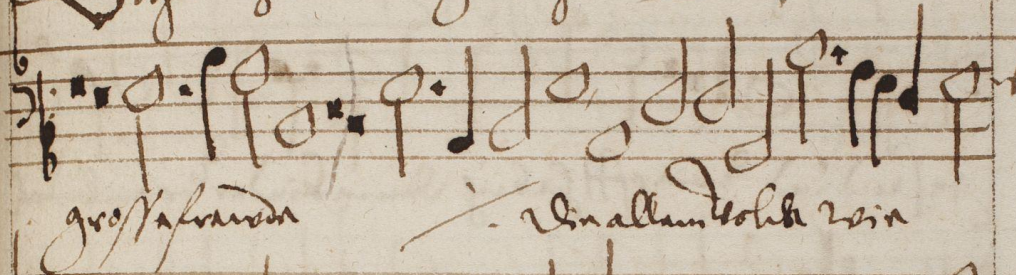 grosse frawde die allem volck wie